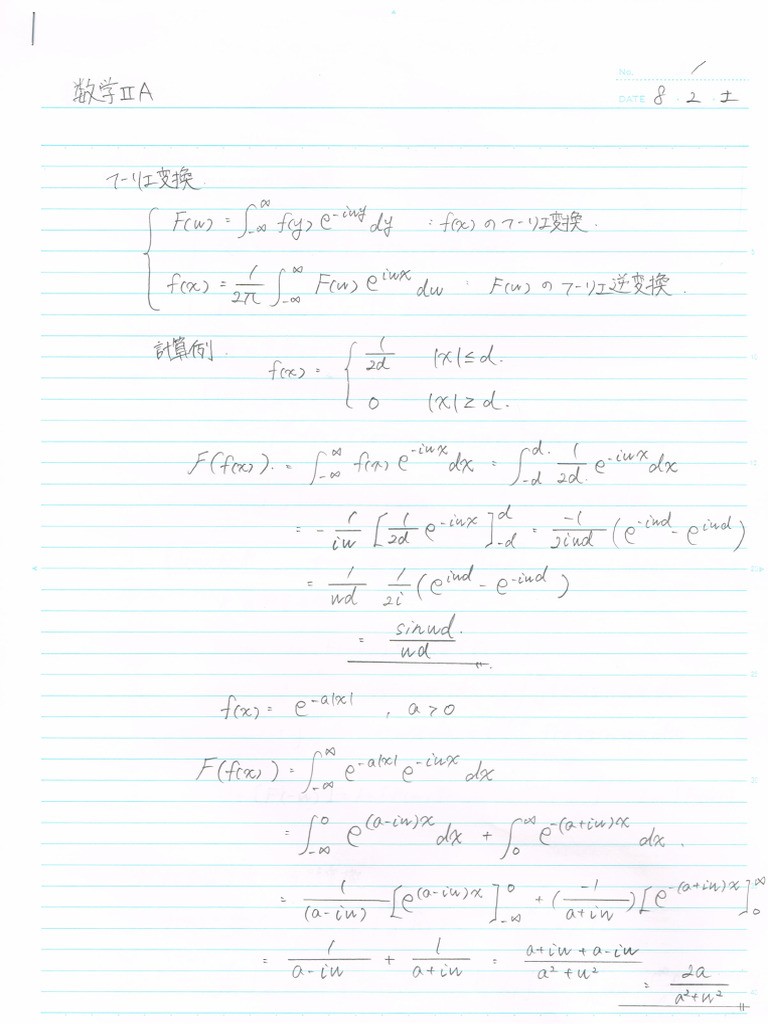 1
No. 1
数学ⅡA
DATE 8 . 2 . 土
フーリエ変換.
F(u) = ∫_{-∞}^{∞} f(y) e^{-iuy} dy : f(x) の フーリエ変換.
f(x) = 1/2π ∫_{-∞}^{∞} F(u) e^{iux} du : F(u) の フーリエ逆変換.
計算例.
f(x) = { 1/2d |x| ≤ d.
0 |x| ≥ d.
F(f(x)). = ∫_{-∞}^{∞} f(x) e^{-iux} dx = ∫_{-d}^{d} 1/2d e^{-iux} dx
= - 1/iu [ 1/2d e^{-iux} ]_{-d}^{d} = -1/2iud (e^{-iud} - e^{iud})
= 1/ud 1/2i (e^{iud} - e^{-iud})
= sin ud/ud
f(x) = e^{-a|x|} , a > 0
F(f(x)) = ∫_{-∞}^{∞} e^{-a|x|} e^{-iux} dx
= ∫_{-∞}^{0} e^{(a-iu)x} dx + ∫_{0}^{∞} e^{-(a+iu)x} dx.
= 1/(a-iu) [e^{(a-iu)x}]_{-∞}^{0} + (-1/a+iu) [e^{-(a+iu)x}]_{0}^{∞}
= 1/a-iu + 1/a+iu = a+iu+a-iu/a²+u² = 2a/a²+u²